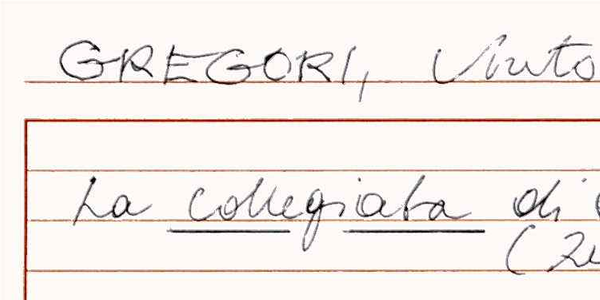 GREGORI,
La collegiata di